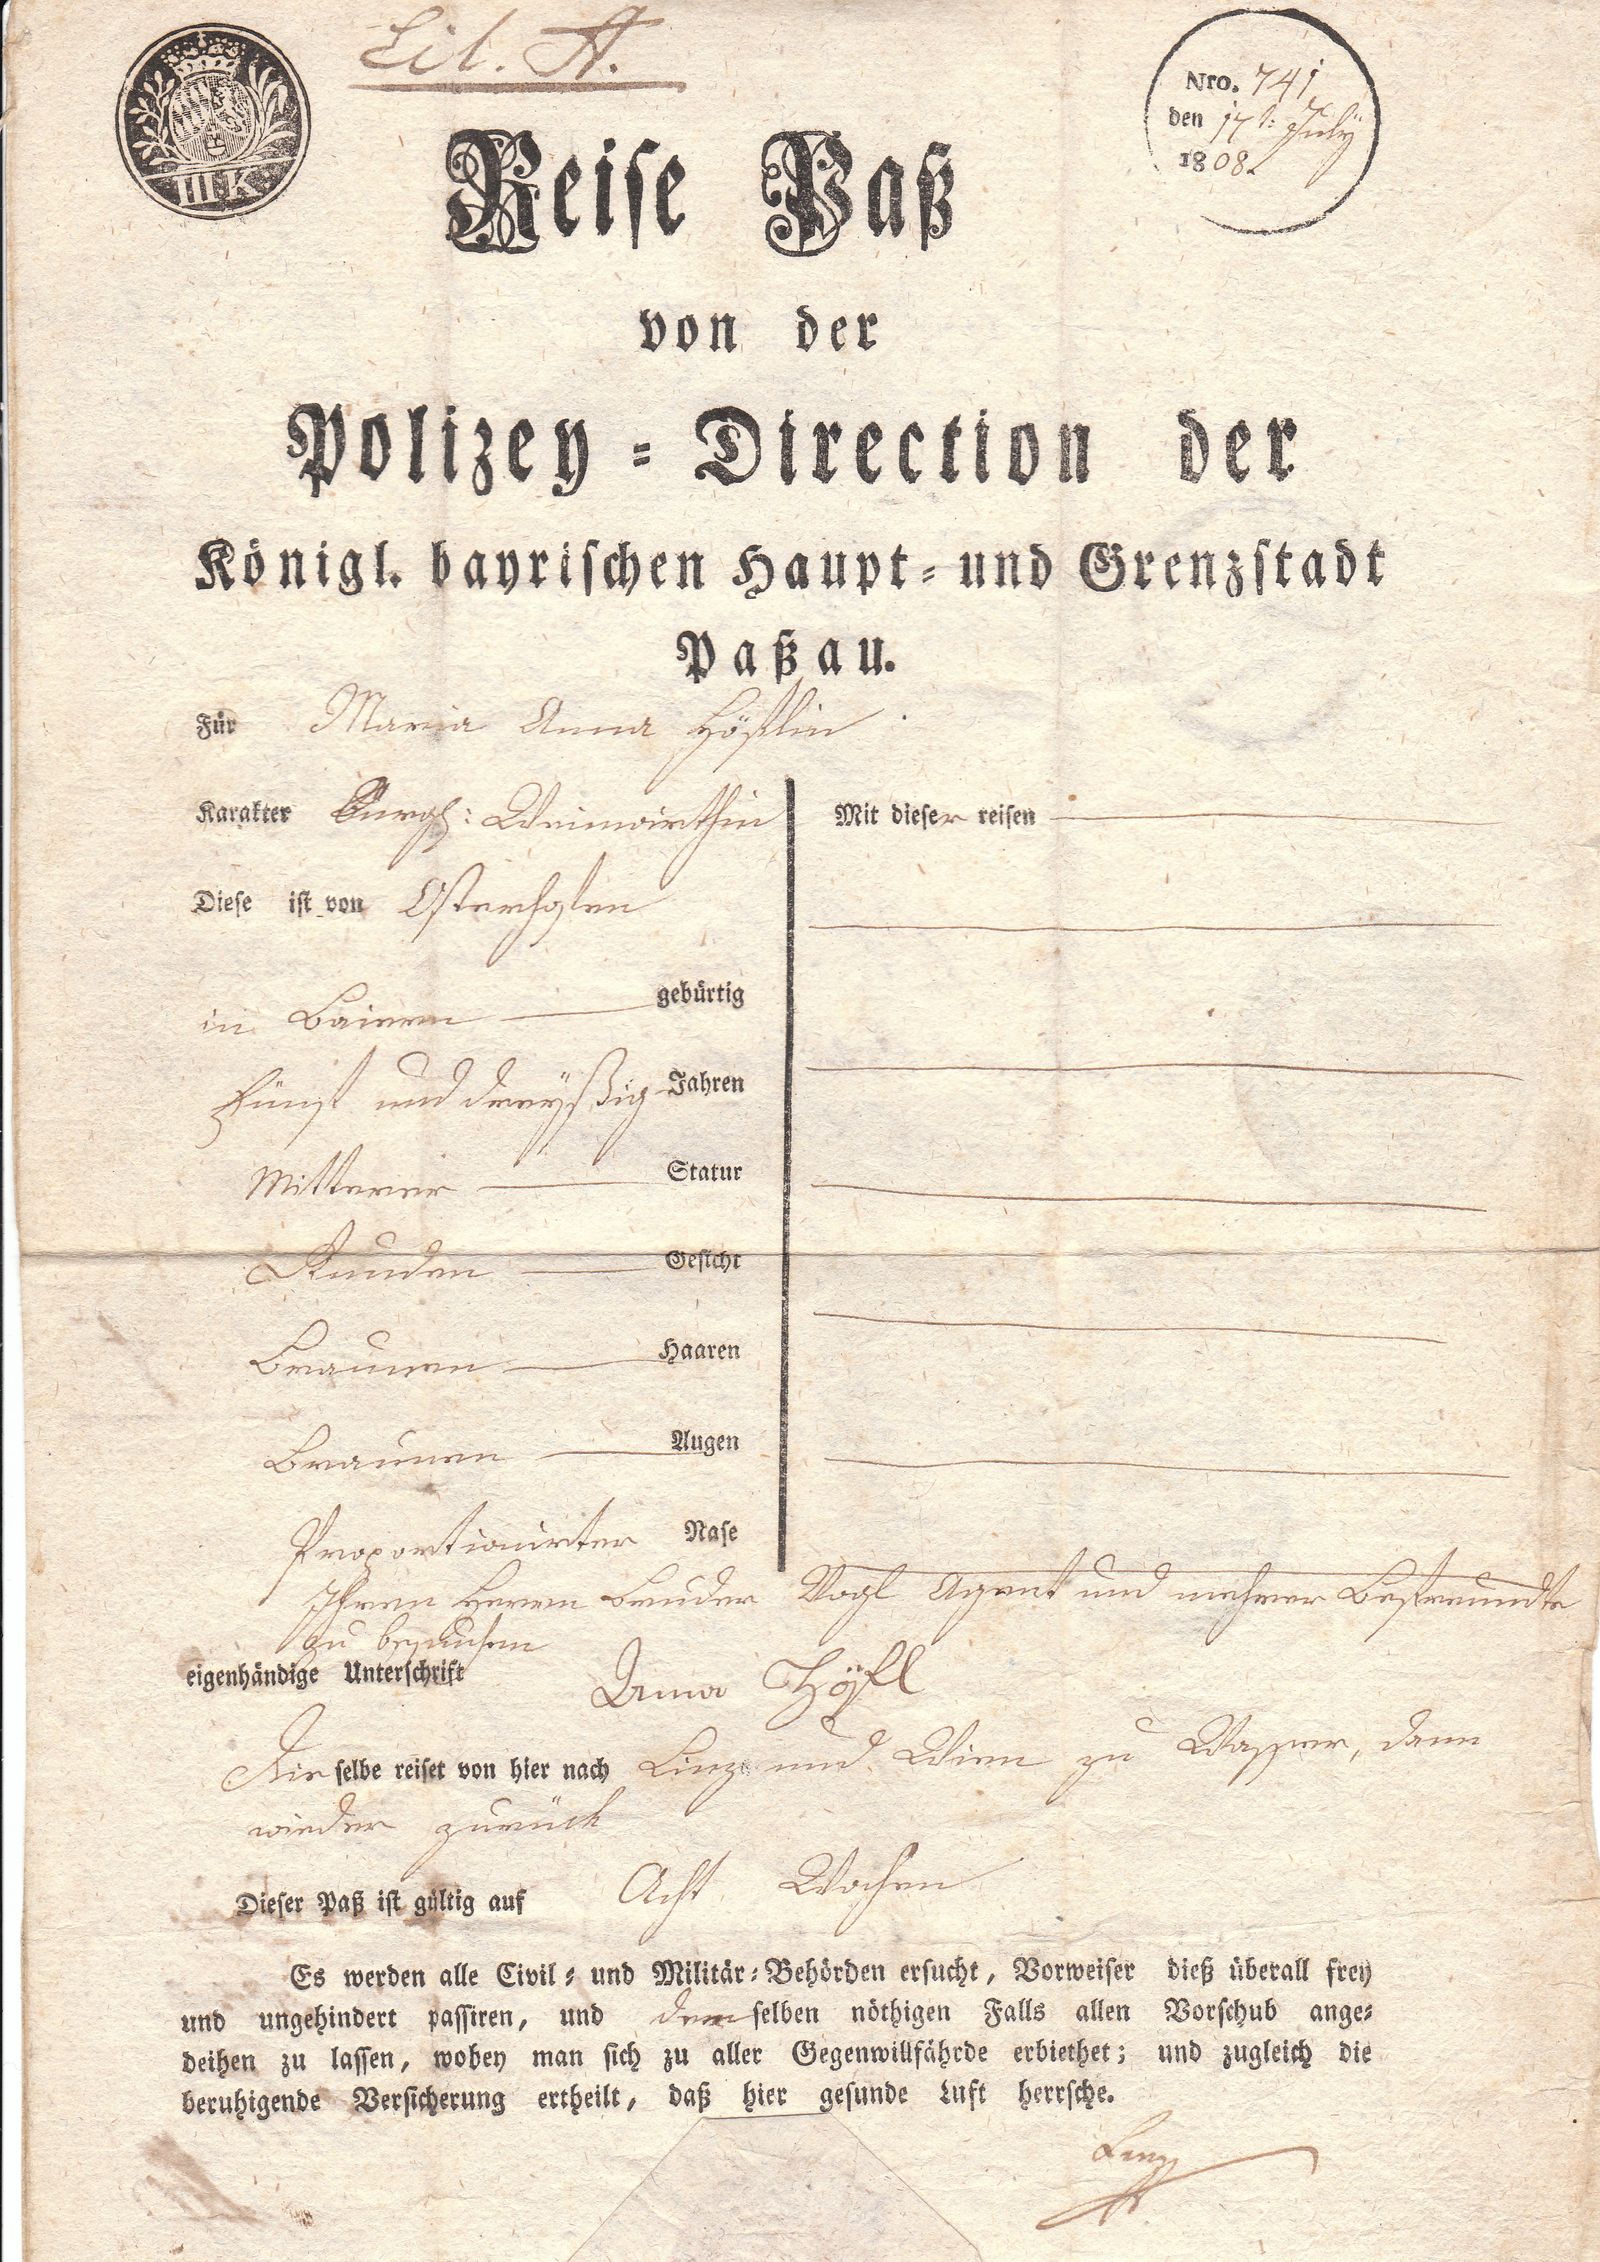 Lit. A.
III K
Nro. 741
den 17t: July
1808.
Reise Paß
von der
Polizey-Direction der
Königl. bayrischen Haupt- und Grenzstadt
Paßau.
Für Maria Anna Hößlin
Karakter Bürgl: Weinwirthin
Mit dieser reisen
Diese ist von Osterhofen
in Baiern gebürtig
Fünf und dreyßig Jahren
Mitterer Statur
Runden Gesicht
Braunen Haaren
Braunen Augen
Proportionirter Nase
Ihren Herrn Bruder Vogl Agent und mehrer Befreundte
zu besuchen
eigenhändige Unterschrift Anna
Dieselbe reiset von hier nach Linz und Wien zu Wasser, dann
wieder zurück
Dieser Paß ist gültig auf Acht Wochen
Es werden alle Civil- und Militär-Behörden ersucht, Vorweiser dieß überall frey
und ungehindert passiren, und demselben nöthigen Falls allen Vorschub ange-
deihen zu lassen, wobey man sich zu aller Gegenwillfährde erbiethet; und zugleich die
beruhigende Versicherung ertheilt, daß hier gesunde Luft herrsche.